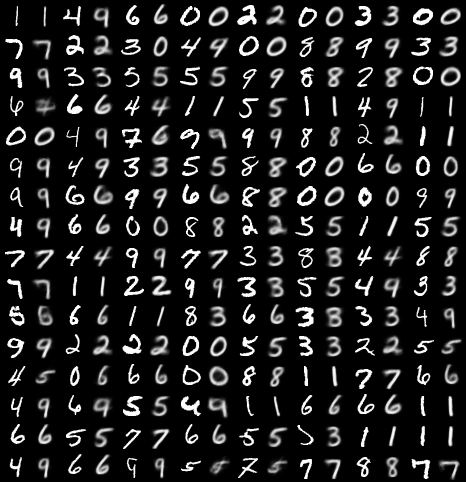 1 1 4 9 6 6 0 0 2 2 0 0 3 3 0 0
7 7 2 2 3 0 4 9 0 0 8 8 9 9 3 3
9 9 3 3 5 5 5 5 9 9 8 8 2 8 0 0
6 6 6 4 4 1 1 5 5 1 1 4 9 1 1
0 0 4 9 7 6 9 9 9 9 8 8 2 2 1 1
9 9 4 9 3 3 5 5 8 8 0 0 6 6 0 0
9 9 6 6 9 9 6 6 8 8 0 0 0 0 9 9
4 9 6 6 0 0 8 8 2 2 5 5 1 1 5 5
7 7 4 4 9 9 7 7 3 3 8 3 4 4 8 8
7 7 1 1 2 2 9 9 3 3 5 5 4 9 3 3
5 6 6 1 1 8 3 6 6 3 3 3 3 4 9
9 9 2 2 2 2 0 0 5 5 3 3 2 2 5 5
4 5 0 6 6 6 0 0 8 8 1 1 7 7 6 6
4 9 6 9 5 5 4 9 1 1 6 6 6 6 1 1
6 6 5 5 7 7 6 6 5 5 5 3 1 1 1 1
4 9 6 6 9 9 5 7 5 7 7 8 8 7 7